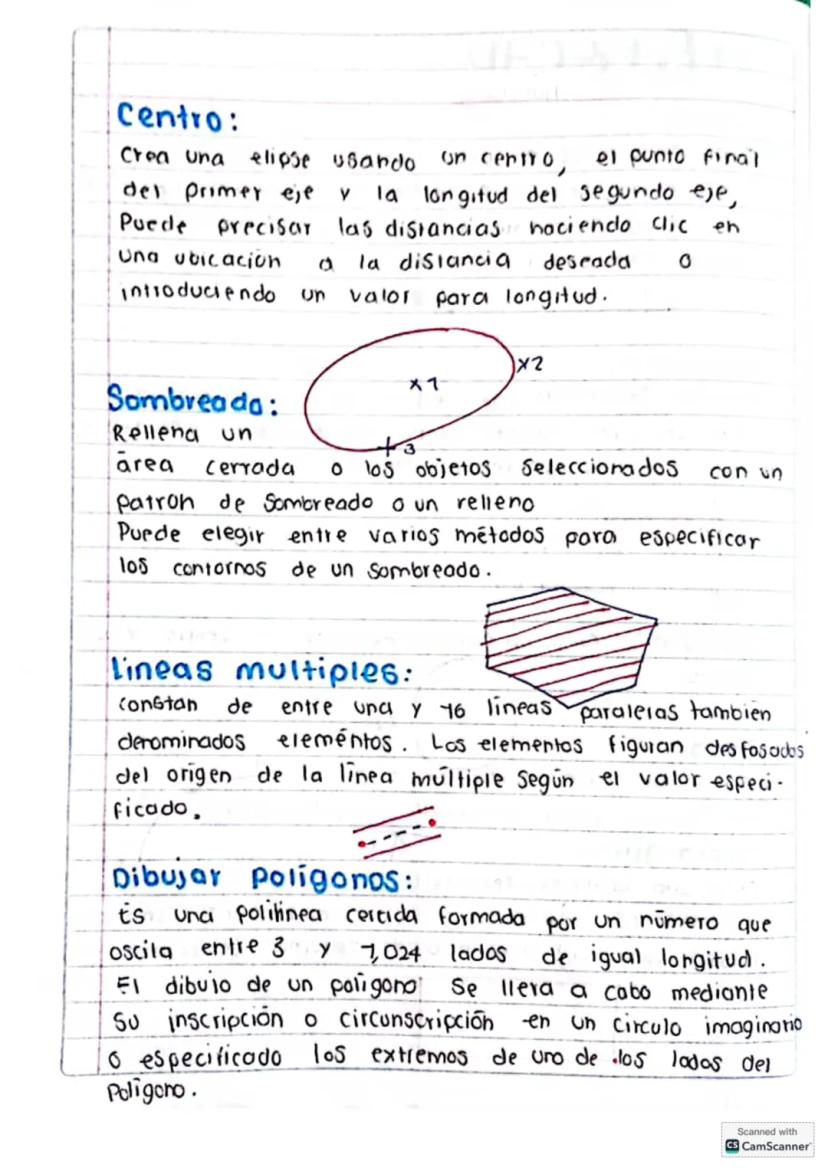 Centro:
Crea una elipse usando un centro, el punto final
del primer eje y la longitud del segundo eje,
Puede precisar las distancias haciendo clic en
una ubicación a la distancia deseada o
introduciendo un valor para longitud.
x1
x2
3
Sombreada:
Rellena un
área cerrada o los objetos seleccionados con un
patron de sombreado o un relleno
Puede elegir entre varios métodos para especificar
los contornos de un sombreado.
Lineas multiples:
constan de entre una y 16 líneas paralelas tambien
denominados eleméntos. Los elementos figuran desfasados
del origen de la línea múltiple según el valor especi-
ficado.
Dibujar polígonos:
Es una polilinea cerrida formada por un número que
oscila entre 3 y 1,024 lados de igual longitud.
El dibujo de un polígono se lleva a cabo mediante
su inscripción o circunscripción en un circulo imaginario
o especificado los extremos de uno de los lados del
Polígono.
Scanned with
CS CamScanner